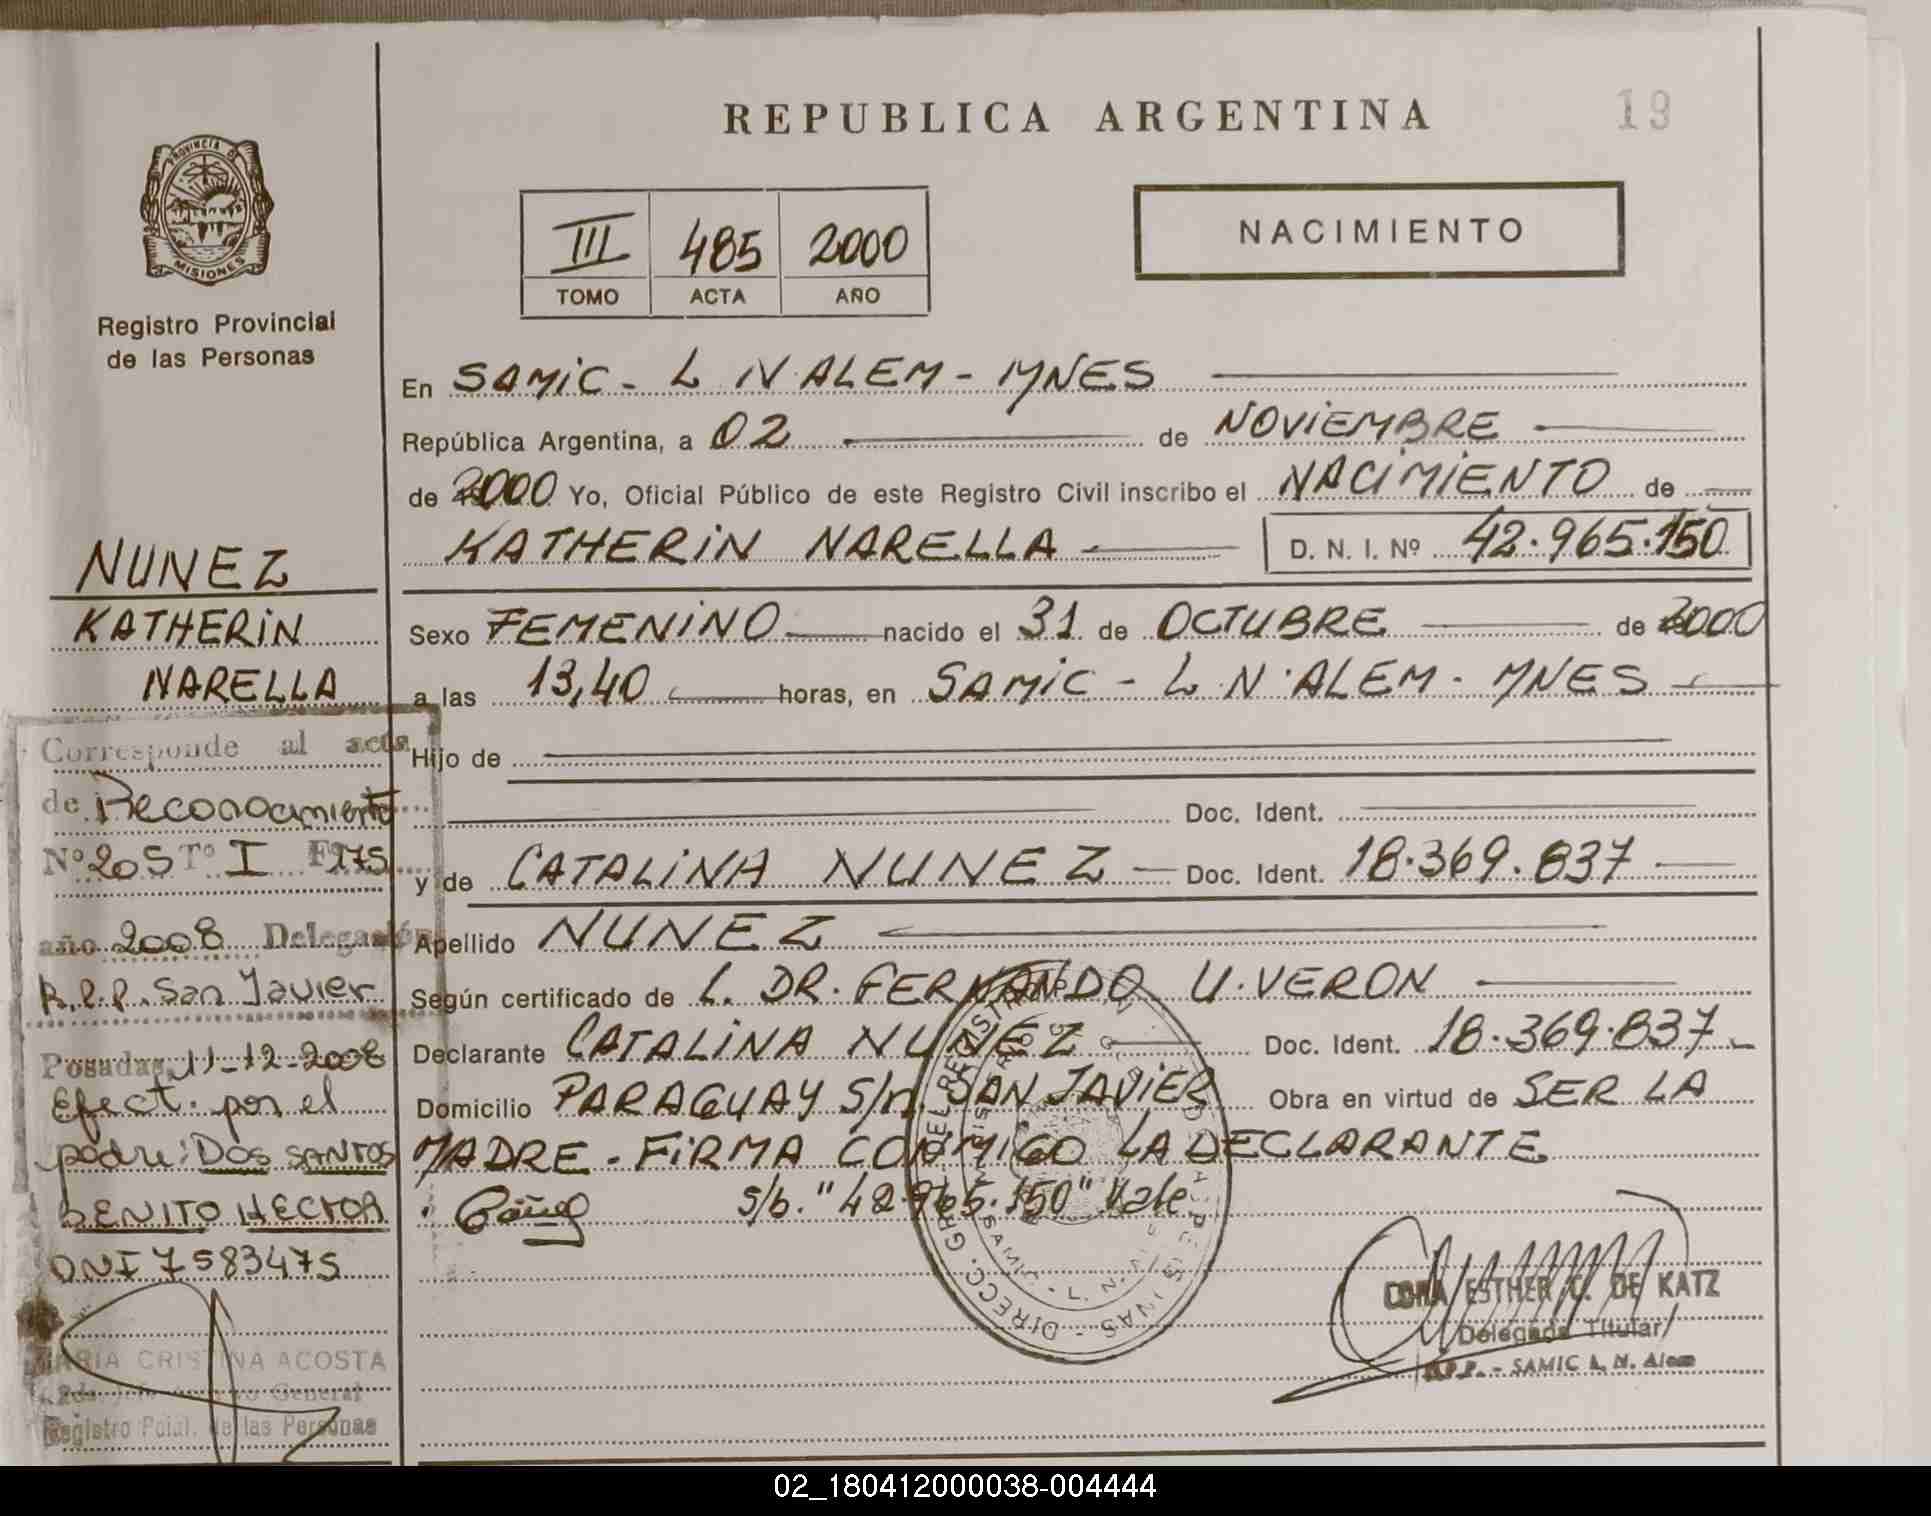 REPUBLICA ARGENTINA
19
PROVINCIA DE
MISIONES
Registro Provincial
de las Personas
III 485 2000
TOMO ACTA AÑO
NACIMIENTO
En SAMIC - L N ALEM - MNES
República Argentina, a 02 de NOVIEMBRE
de 2000 Yo, Oficial Público de este Registro Civil inscribo el NACIMIENTO de
KATHERIN NARELLA D. N. I. Nº 42.965.150
Sexo FEMENINO nacido el 31 de OCTUBRE de 2000
a las 13,40 horas, en SAMIC - L. N. ALEM - MNES
Hijo de
Doc. Ident.
y de CATALINA NUNEZ Doc. Ident. 18.369.837
Apellido NUNEZ
Según certificado de L. DR. FERNANDO U. VERON
Declarante CATALINA NUNEZ Doc. Ident. 18.369.837
Domicilio PARAGUAY S/n. SAN JAVIER Obra en virtud de SER LA
MADRE - FIRMA CONMIGO LA DECLARANTE
s/b. "42.965.150" Vale
ESTHER C. DE KATZ
Delegada Titular
R.P.P. - SAMIC L. N. Alem
NUNEZ
KATHERIN
NARELLA
Corresponde al acta
de Reconocimiento
Nº 205 Tº I Fº 175
año 2008 Delegación
R.P.P. San Javier
Posadas, 11-12-2008
Efect. por el
padre: DOS SANTOS
BENITO HECTOR
DNI 7583475
MARIA CRISTINA ACOSTA
General
Registro Pcial. de las Personas
02_180412000038-004444